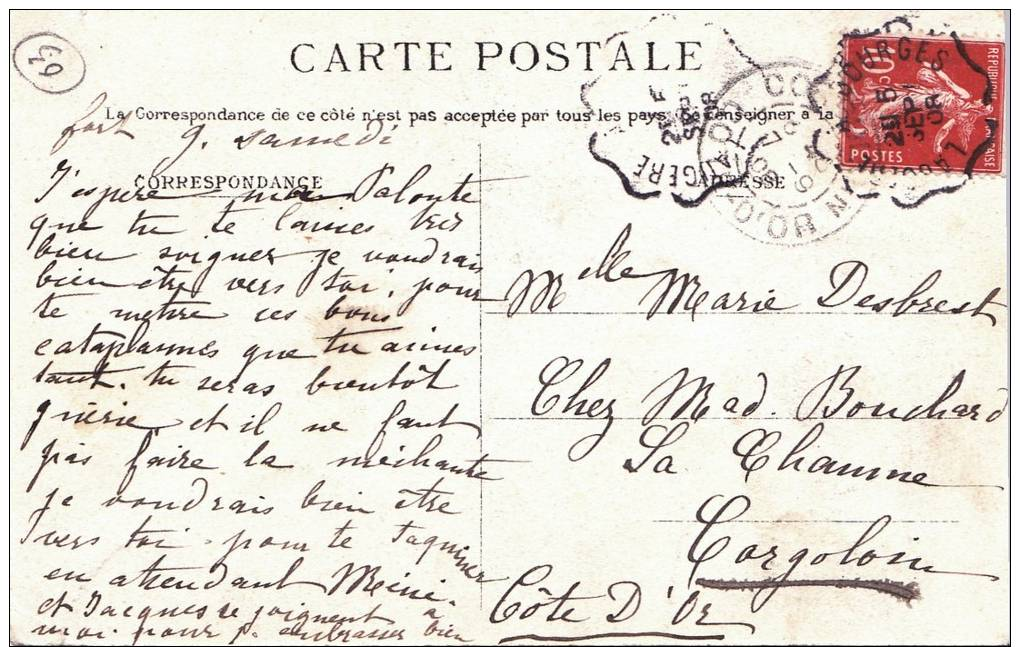 63
CARTE POSTALE
La Correspondance de ce côté n'est pas acceptée par tous les pays. Se renseigner à la
samedi
CORRESPONDANCE
ADRESSE
J'espère ma Palonte
que tu te laisses très
bien soigner je voudrais
bien être vers toi, pour
te mettre ces bons
cataplasmes que tu aimes
tant. tu seras bientôt
guérie et il ne faut
pas faire la méchante
je voudrais bien être
vers toi pour te taquiner
en attendant
et Jacques se joignent à
moi pour t. embrasser bien
Mlle Marie Desbrest
Chez Mad. Bouchard
La Chaume
Corgoloin
Côte D'Or
BOURGES
D'OR
10 c
POSTES
REPUBLIQUE FRANÇAISE